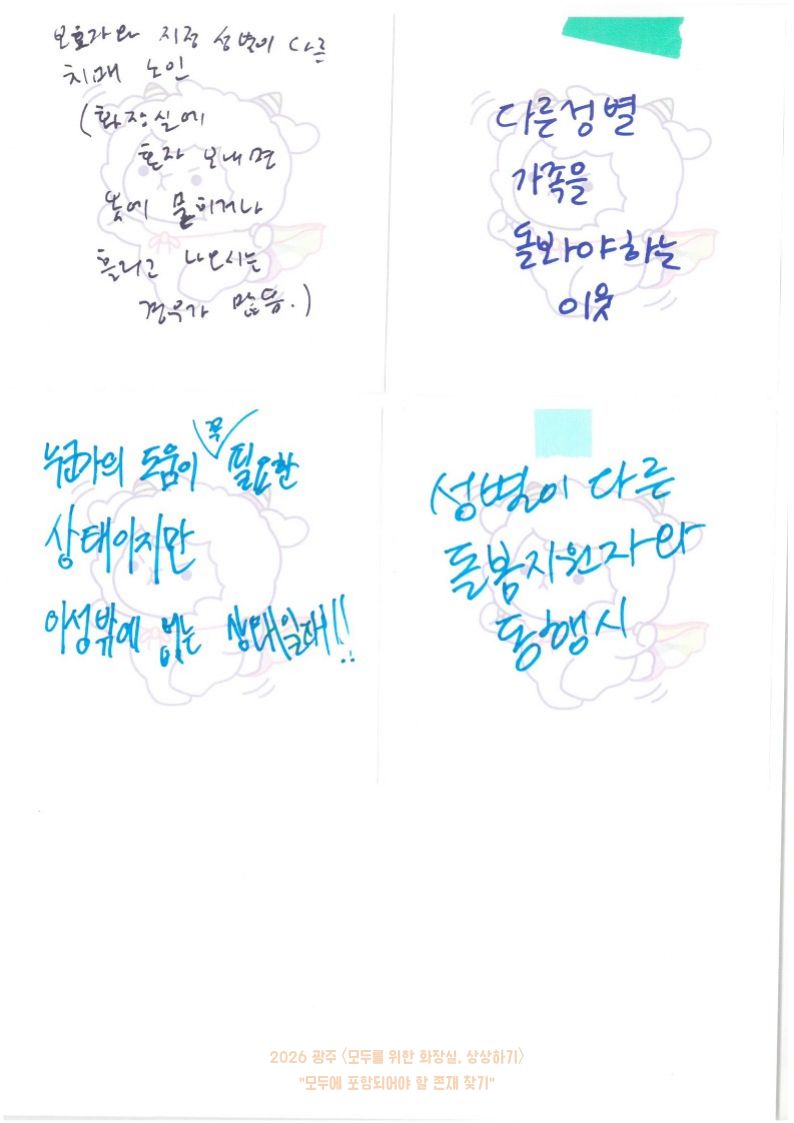 보호자와 지정 성별이 다른
치매 노인
(화장실에
혼자 보내면
옷에 묻히거나
흘리고 나오시는
경우가 많음.)
다른성별
가족을
돌봐야하는
이웃
누군가의 도움이 꼭 필요한
상태이지만
이성밖에 없는 상태일때!!
성별이 다른
돌봄지원자와
동행시
2026 광주 <모두를 위한 화장실, 상상하기>
"모두에 포함되어야 할 존재 찾기"